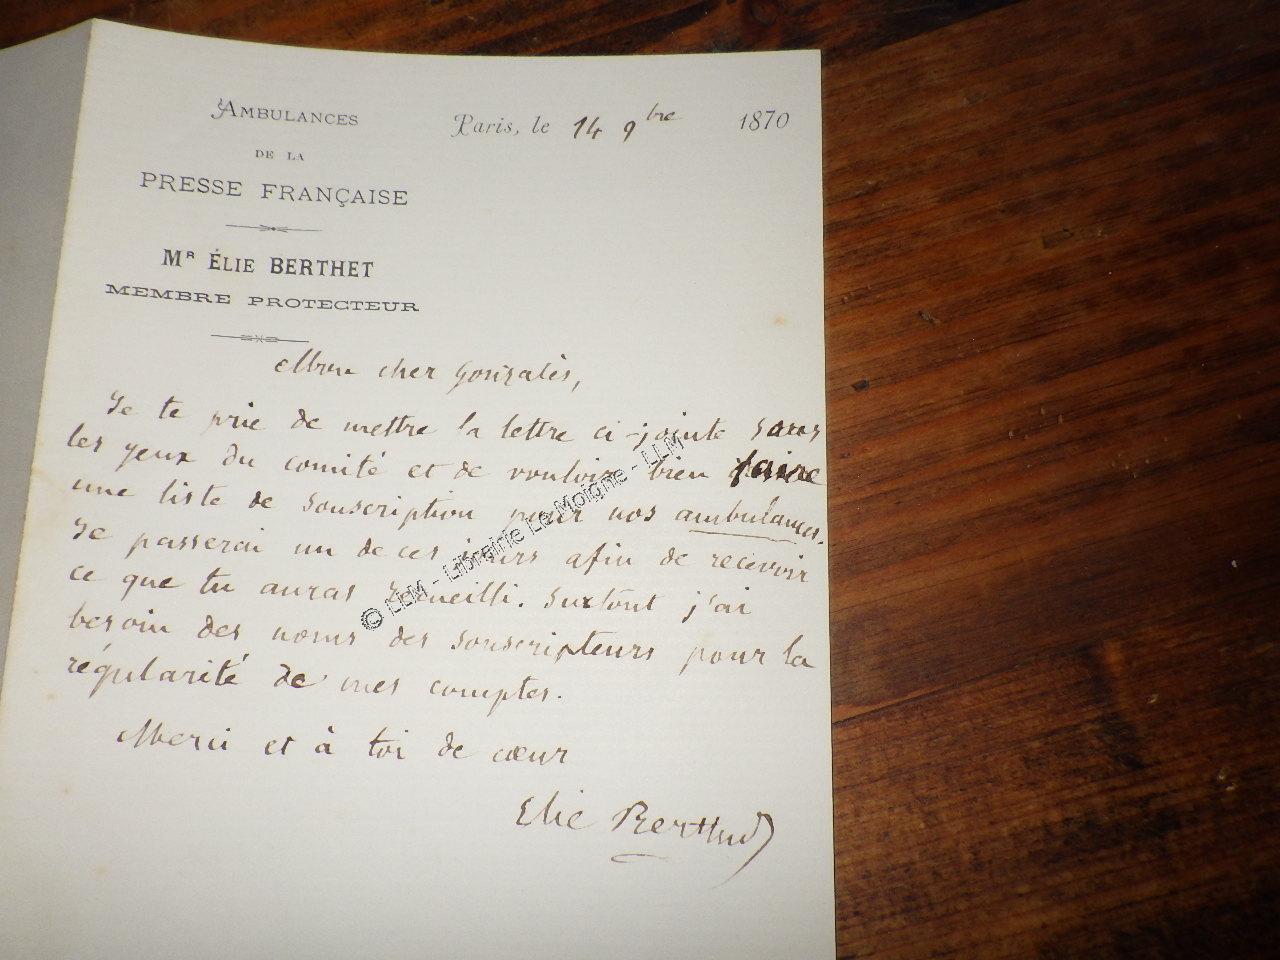 AMBULANCES
DE LA
PRESSE FRANÇAISE
Mᴿ ÉLIE BERTHET
MEMBRE PROTECTEUR
Paris, le 14 9bre 1870
Mon cher Gonzalès,
Je te prie de mettre la lettre ci-jointe sous
les yeux du comité et de vouloir bien faire
une liste de souscription pour nos ambulances.
Je passerai un de ces jours afin de recevoir
ce que tu auras recueilli. Surtout j'ai
besoin des noms des souscripteurs pour la
régularité de mes comptes.
Merci et à toi de cœur
Elie Berthet
© LLM - Librairie Le Moigne - LLM